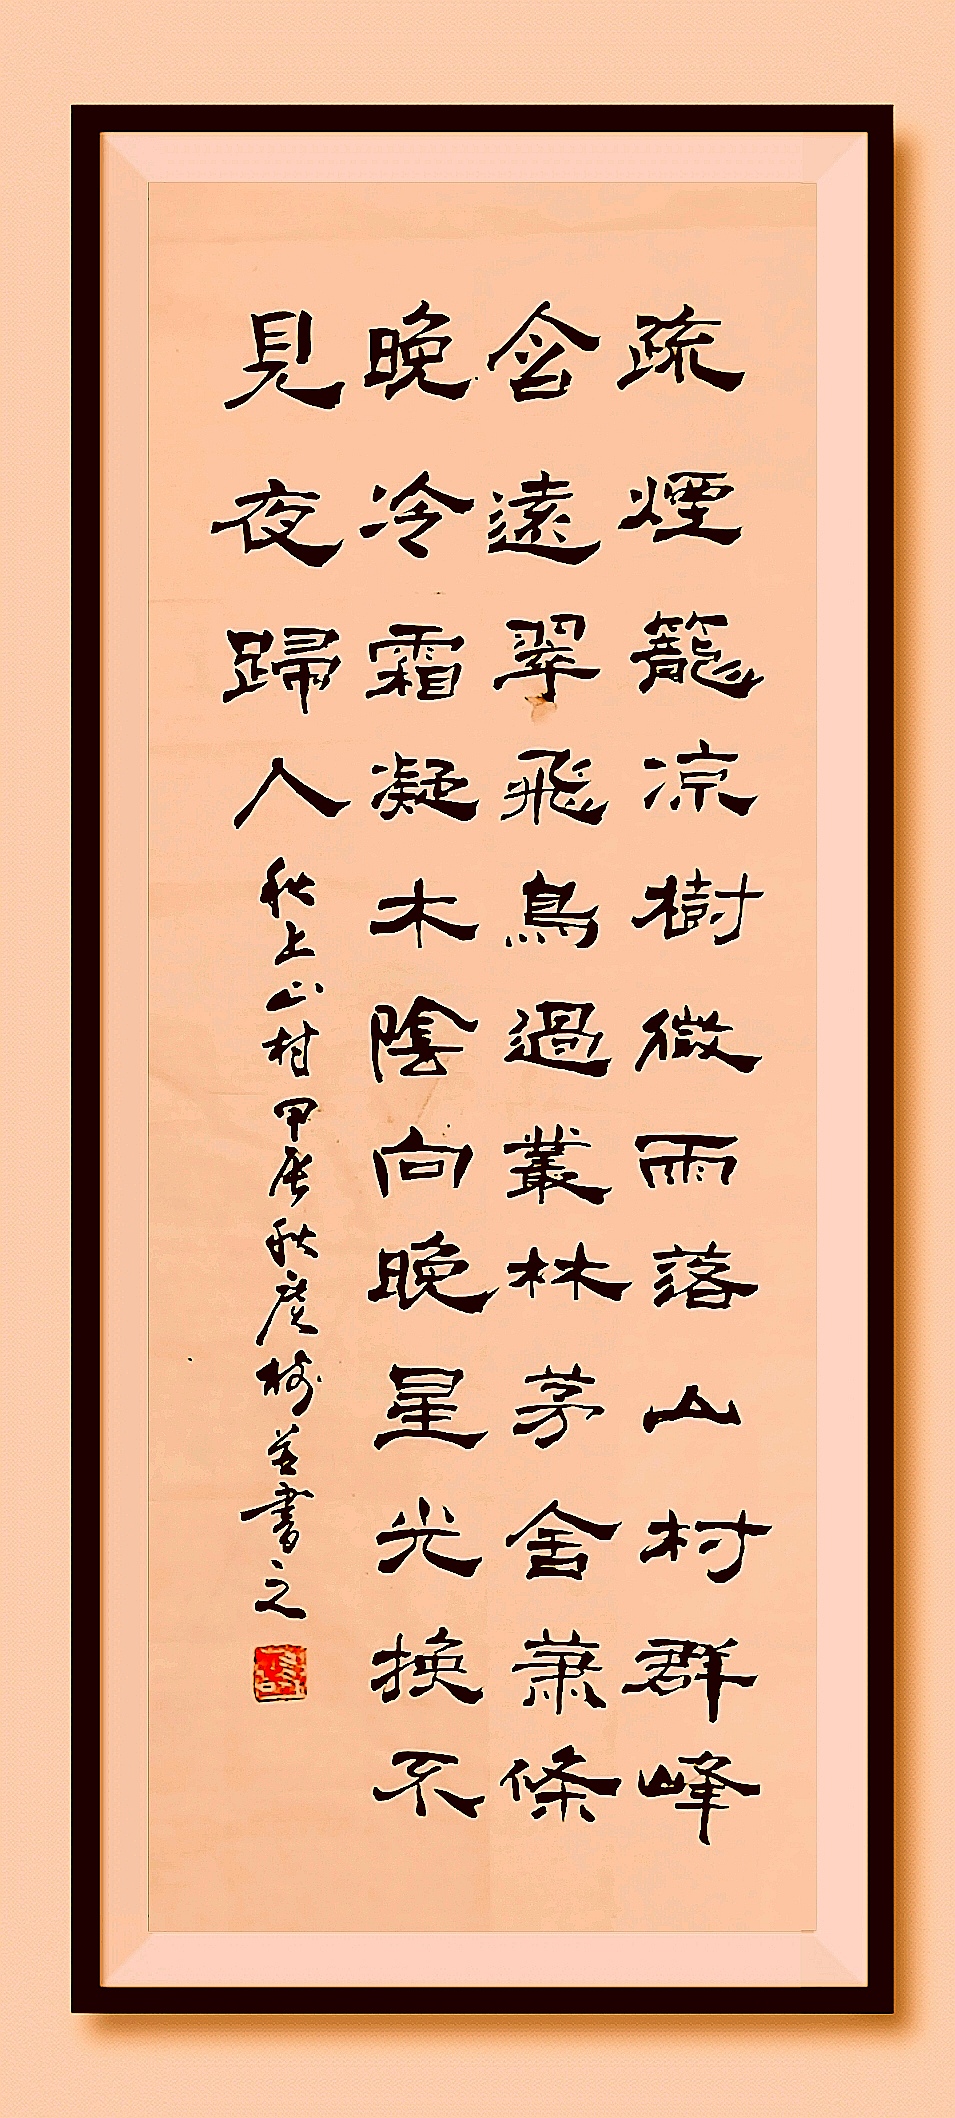 疏煙籠凉樹微雨落山村群峰
含遠翠飛鳥過叢林茅舍蕭條
晚冷霜凝木陰向晚星光換不
見夜歸人
秋上山村甲辰秋並書之